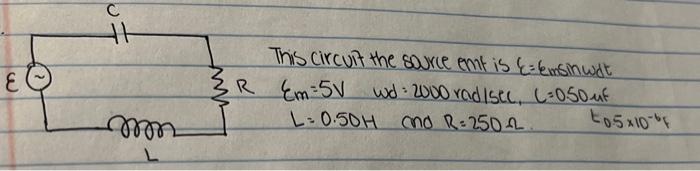 C
This circuit the source emf is ℰ=ℰmsinwdt
ℰ
R
ℰm=5V wd=2000 rad/sec, C=0.50uf
L=0.50H and R=250Ω. 0.5x10⁻⁶F
L